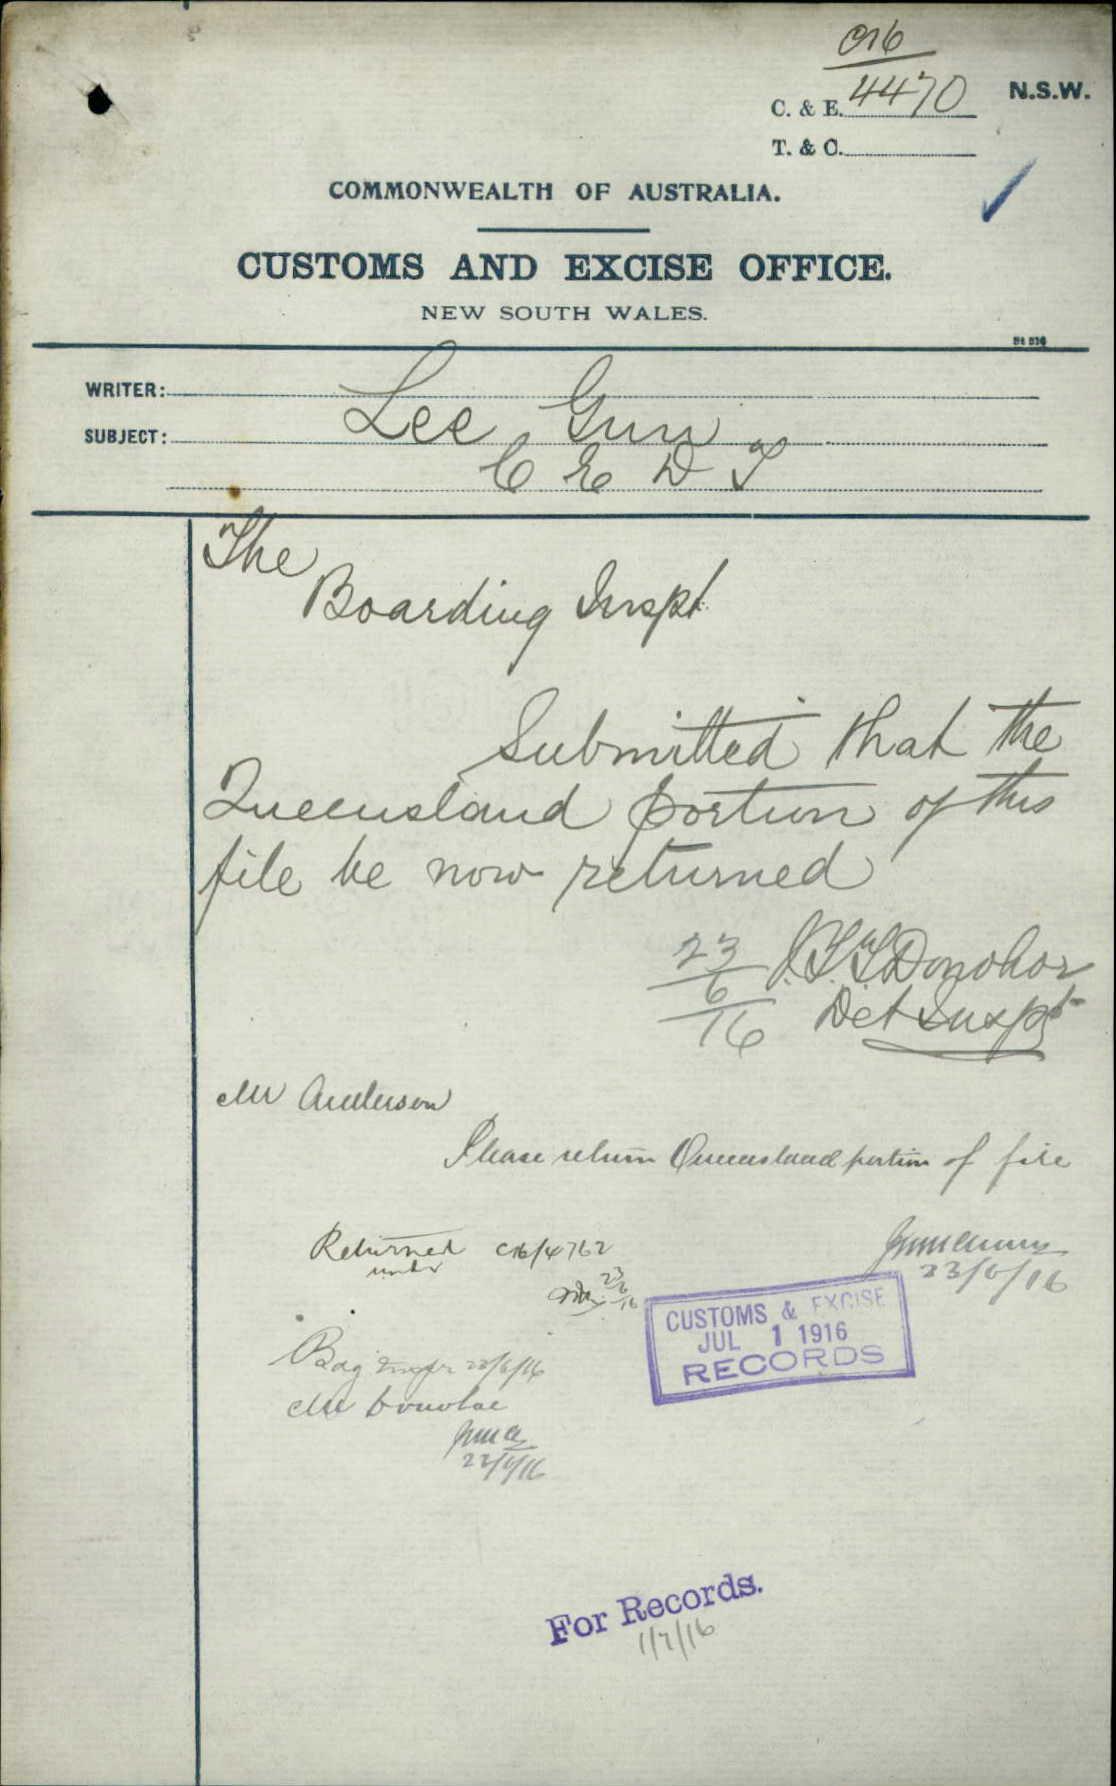 C16
C. & E. 4470 N.S.W.
T. & C.
COMMONWEALTH OF AUSTRALIA.
CUSTOMS AND EXCISE OFFICE.
NEW SOUTH WALES.
WRITER:
Lee Gun
SUBJECT:
C E D T
The
Boarding Inspt
Submitted that the
Queensland portion of this
file be now returned
23/6/16 J.T.T. Donohoe
Det Inspt
Mr Anderson
Please return Queensland portion of file
Returned C16/4762
under
23/6/16
23/6/16
CUSTOMS & EXCISE
JUL 1 1916
RECORDS
Bdg Inspr 23/6/16
Mr Donohoe
For Records.
1/7/16